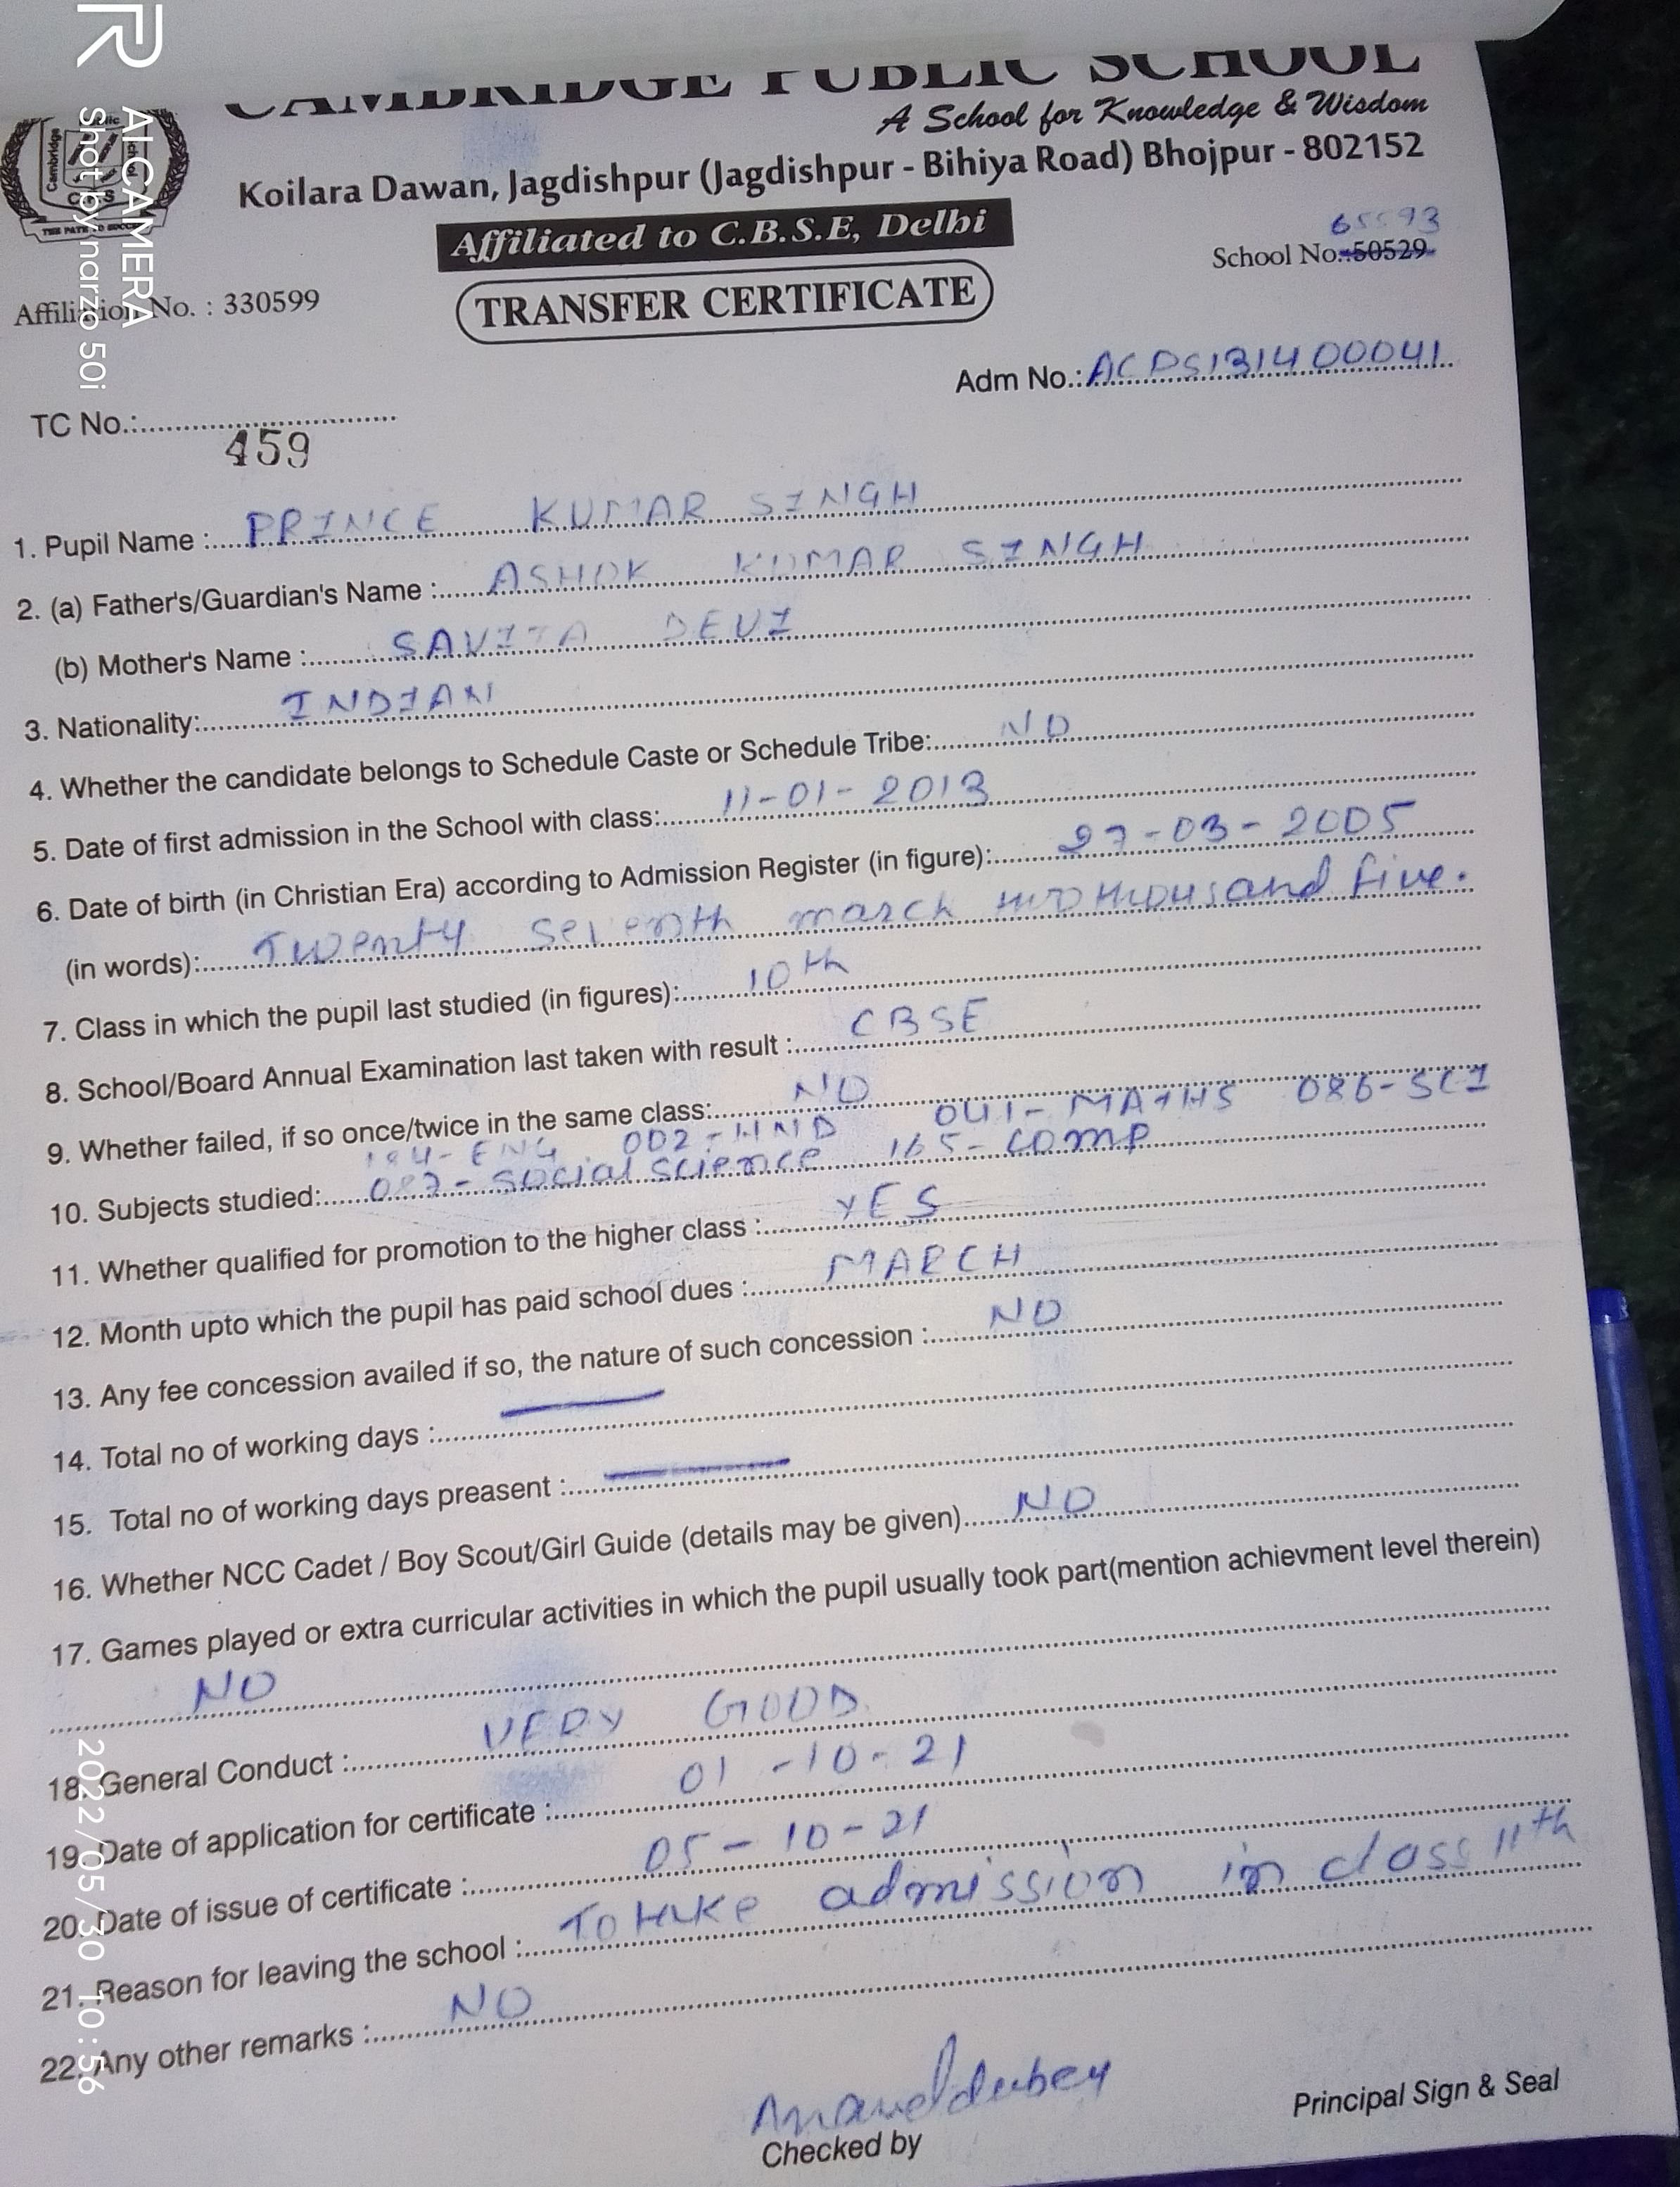 CAMBRIDGE PUBLIC SCHOOL
A School for Knowledge & Wisdom
Koilara Dawan, Jagdishpur (Jagdishpur - Bihiya Road) Bhojpur - 802152
Affiliated to C.B.S.E, Delhi
65593
School No.:50529
Affiliation No. : 330599
TRANSFER CERTIFICATE
Adm No.: ACPS131400041
TC No.:
459
1. Pupil Name : PRINCE KUMAR SINGH
2. (a) Father's/Guardian's Name : ASHOK KUMAR SINGH
(b) Mother's Name : SAVITA DEVI
3. Nationality: INDIAN
4. Whether the candidate belongs to Schedule Caste or Schedule Tribe: NO
5. Date of first admission in the School with class: 11-01-2013
6. Date of birth (in Christian Era) according to Admission Register (in figure): 27-03-2005
(in words): Twenty seventh march two thousand five.
7. Class in which the pupil last studied (in figures): 10th
8. School/Board Annual Examination last taken with result : CBSE
9. Whether failed, if so once/twice in the same class: NO
184-ENG 002-HND 041-MATHS 086-SCI
10. Subjects studied: 087-social science 165-comp
11. Whether qualified for promotion to the higher class : YES
12. Month upto which the pupil has paid school dues : MARCH
13. Any fee concession availed if so, the nature of such concession : NO
14. Total no of working days :
15. Total no of working days preasent :
16. Whether NCC Cadet / Boy Scout/Girl Guide (details may be given) NO
17. Games played or extra curricular activities in which the pupil usually took part(mention achievment level therein)
NO
18. General Conduct : VERY GOOD
19. Date of application for certificate : 01-10-21
20. Date of issue of certificate : 05-10-21
21. Reason for leaving the school : To take admission in class 11th
22. Any other remarks : NO
Anand dubey
Checked by
Principal Sign & Seal
Cambridge
CPS
R
AI CAMERA
Shot by narzo 50i
2022/05/30 10:56